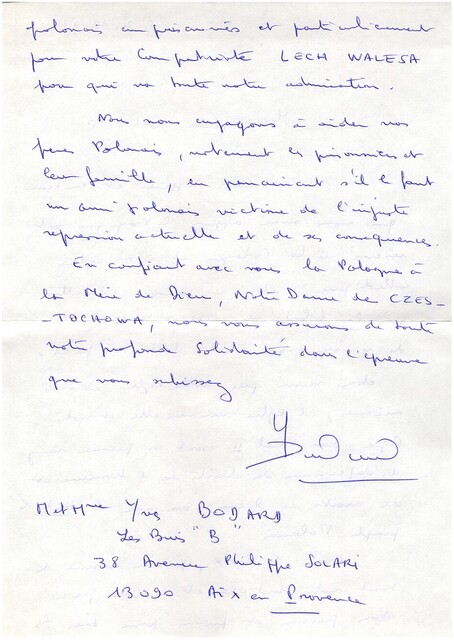 polonais emprisonnés et particulièrement
pour votre Compatriote LECH WALESA
pour qui va toute notre admiration.
Nous nous engageons à aider nos
frères Polonais, notamment les prisonniers et
leur famille, en parrainant s'il le faut
un ami polonais victime de l'injuste
repression actuelle et de ses conséquences.
En confiant avec vous la Pologne à
la Mère de Dieu, Notre Dame de CZES-
-TOCHOWA, nous vous assurons de toute
notre profonde Solidarité dans l'épreuve
que vous subissez
M et Mme Yves BODARD
Les Buis "B"
38 Avenue Philippe SOLARI
13090 Aix en Provence